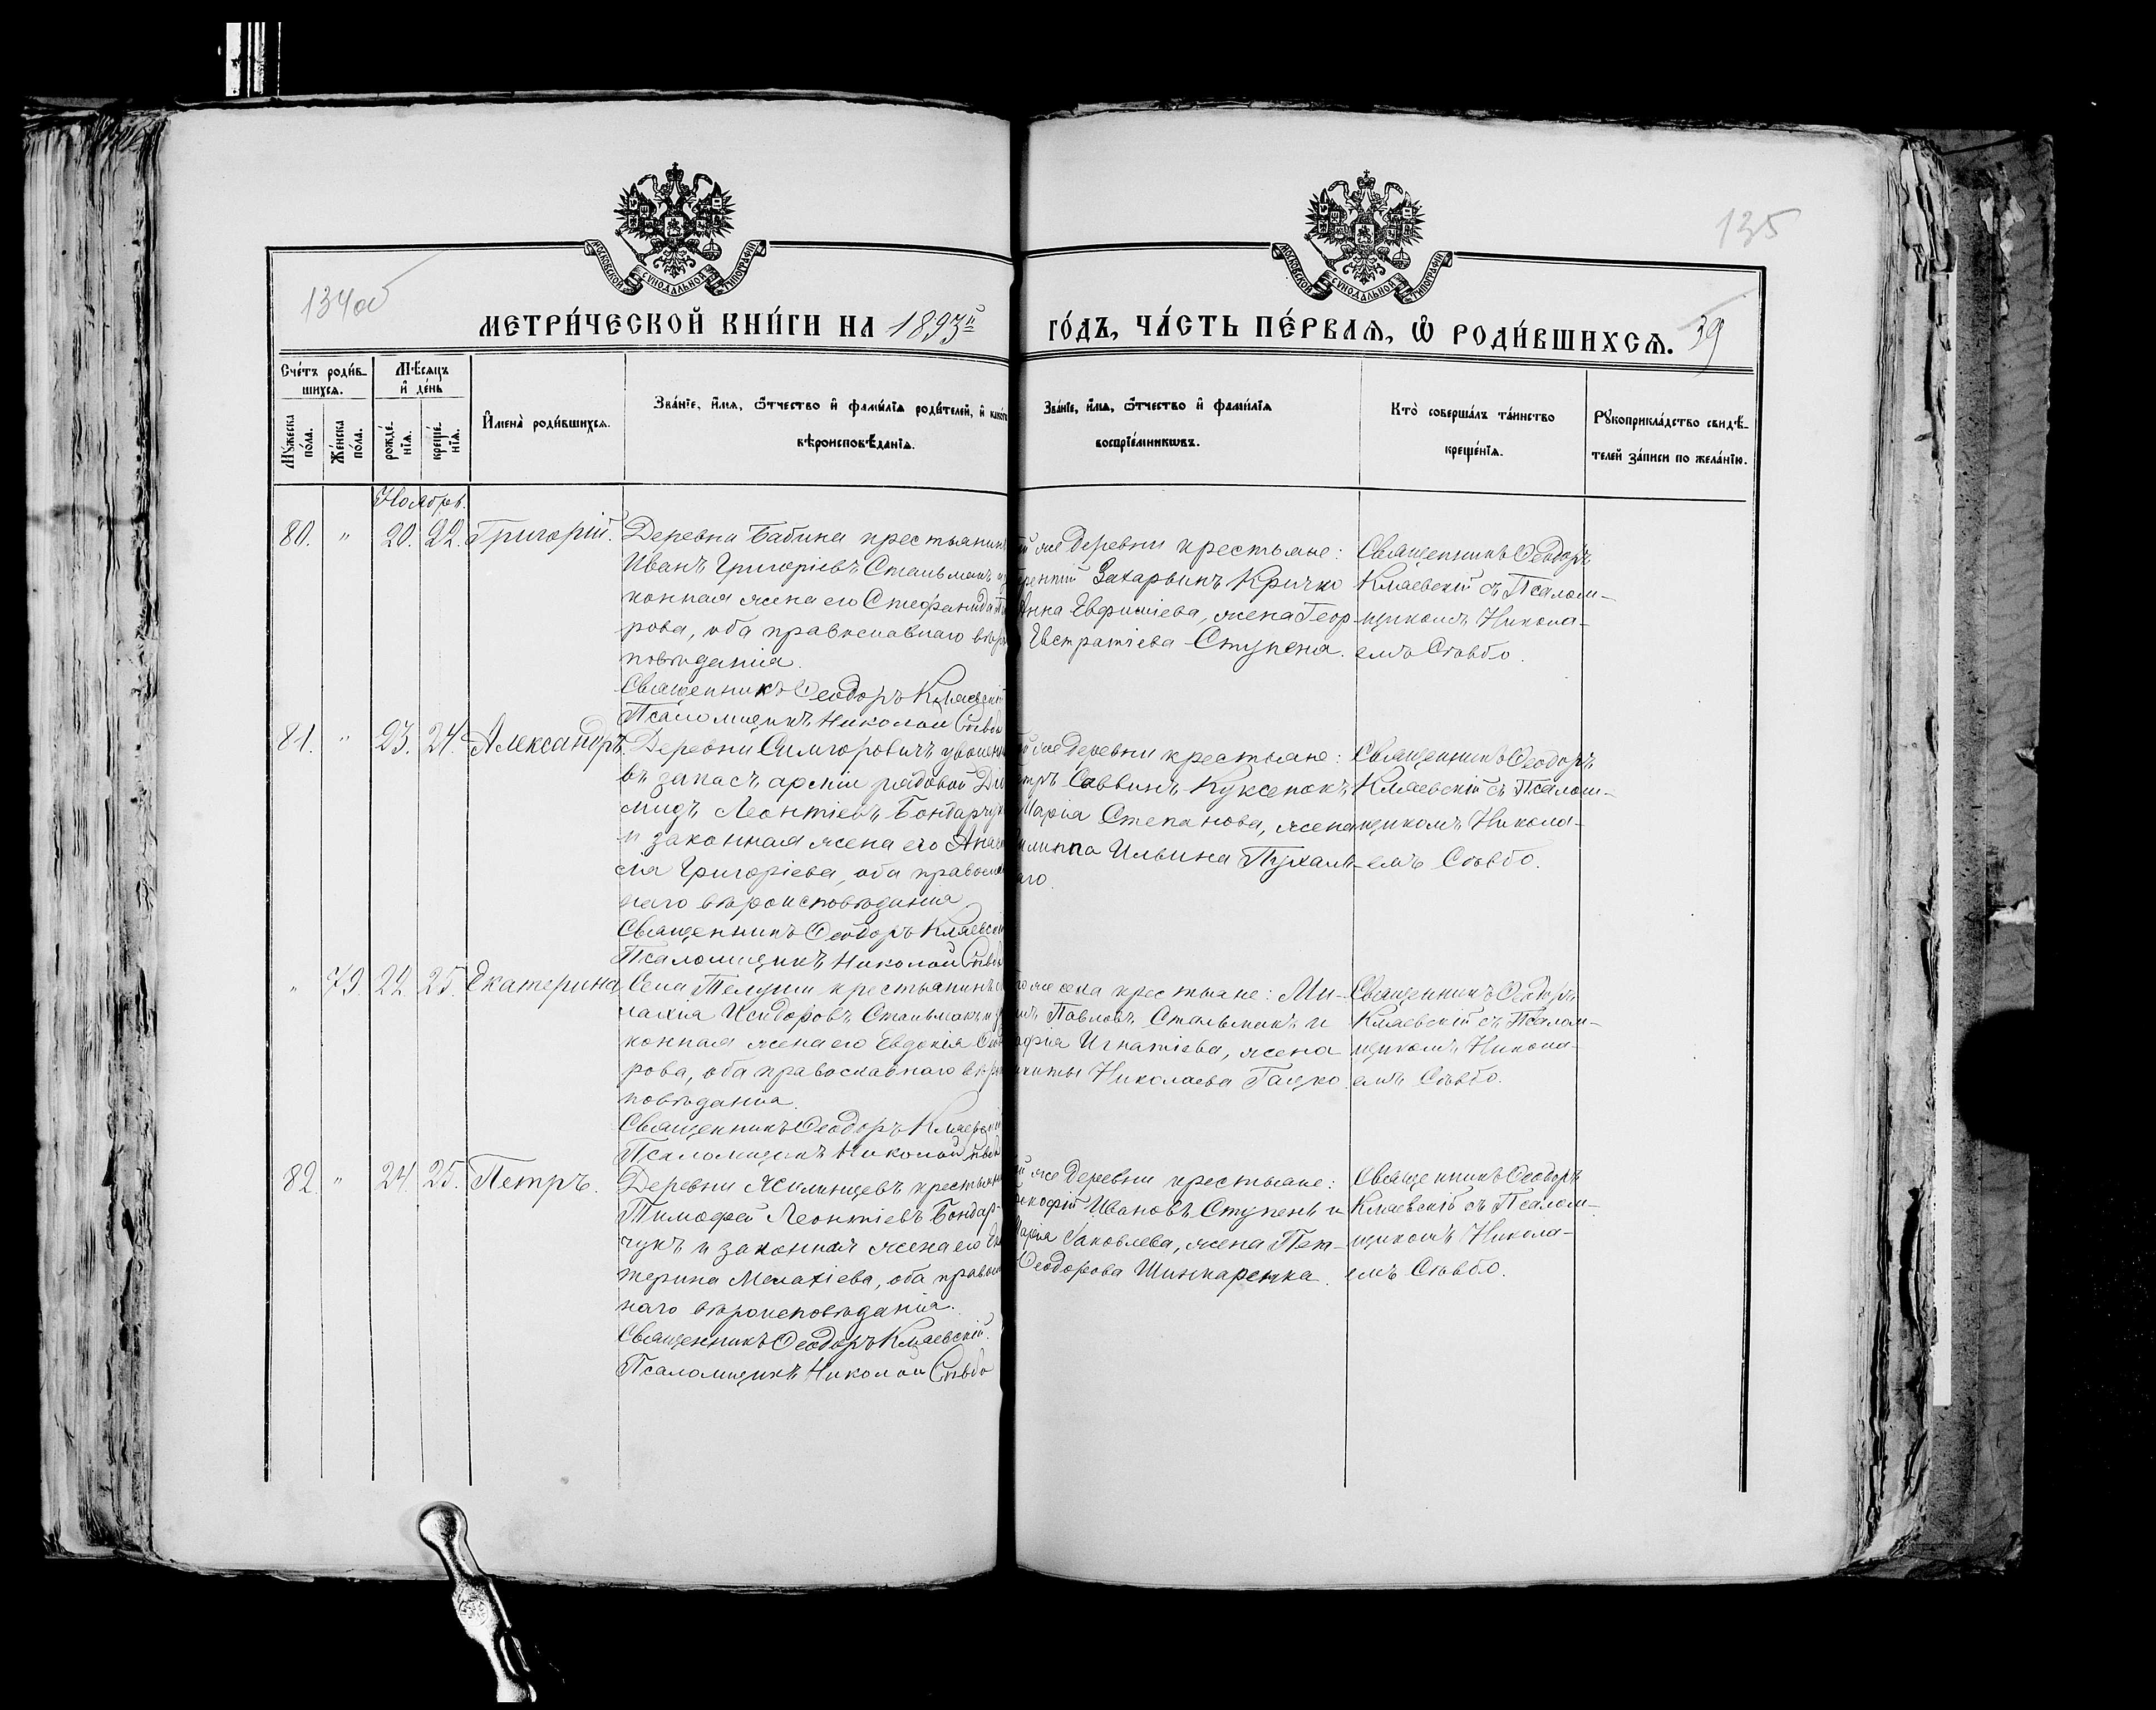 134об
135
МОСКОВСКОЙ СУНОДАЛЬНОЙ ТИПОГРАФІИ
МОСКОВСКОЙ СУНОДАЛЬНОЙ ТИПОГРАФІИ
МЕТРИ́ЧЕСКОЙ КНИ́ГИ НА 1893й ГО́ДЪ, ЧА́СТЬ ПЕ́РВАѦ, Ѡ҆ РОДИ́ВШИХСѦ. 39
Сче́тъ роди́в-
шихсѧ.
Мꙋ́жеска по́ла.
Же́нска по́ла.
Мѣ́сѧцъ
и҆ де́нь
рожде́нїѧ.
креще́нїѧ.
И҆мена̀ роди́вшихсѧ.
Зва́нїе, и҆́мѧ, ѻ҆́тчество и҆ фами́лїѧ роди́телей, и҆ како́гѡ
вѣроисповѣ́данїѧ.
Зва́нїе, и҆́мѧ, ѻ҆́тчество и҆ фами́лїѧ
воспрїе́мникѡвъ.
Кто̀ соверша́лъ та́инство
креще́нїѧ.
Рꙋкоприкла́дство свидѣ́-
телей за́писи по жела́нїю.
Ноябрь.
80. " 20. 22. Григорій.
Деревни Бабина крестьянинъ
Иванъ Григоріевъ Стальмахъ и
конная жена его Стефанида
рова, оба православнаго вѣро
повѣданія.
Священникъ Ѳеодоръ Кляевскій
Псаломщикъ Николай Сѣвбо
же деревни крестьяне:
Захарьинъ Кричко
Анна Евфиміева, жена Геор-
Евстратіева Ступеня.
Священникъ Ѳеодоръ
Кляевскій съ Псалом-
щикомъ Никола-
емъ Сѣвбо.
81. " 23. 24. Александръ.
Деревни Симгоровичъ уволен
въ запасъ арміи рядовой Діо
мидъ Леонтіевъ Бондарчук
и законная жена его Анаст
сія Григоріева, оба правосла
наго вѣроисповѣданія
Священникъ Ѳеодоръ Кляевскій
Псаломщикъ Николай Сѣвбо
же деревни крестьяне:
Саввинъ Куксенокъ
Марія Степанова, жена
Филиппа Ильина Пухаль-
аго.
Священникъ Ѳеодоръ
Кляевскій съ Псалом-
щикомъ Никола-
емъ Сѣвбо.
" 79. 22. 25. Екатерина
Села Телуши крестьянинъ
лахія Исидоровъ Стальмахъ и за
конная жена его Евдокія Ѳеод
рова, оба православнаго вѣро
повѣданія.
Священникъ Ѳеодоръ Кляевскій
Псаломщикъ Николай Сѣвбо
же села крестьяне: Ми-
Павловъ Стальмахъ и
Игнатіева, жена
Никиты Николаева Гацко.
Священникъ Ѳеодоръ
Кляевскій съ Псалом-
щикомъ Никола-
емъ Сѣвбо.
82. " 24. 25. Петръ.
Деревни Жилинцевъ крестьянин
Тимофей Леонтіевъ Бондар-
чукъ и законная жена его Ека
терина Малахіева, оба правосла
наго вѣроисповѣданія.
Священникъ Ѳеодоръ Кляевскій.
Псаломщикъ Николай Сѣвбо
же деревни крестьяне:
Прокофій Ивановъ Ступень и
Марія Яковлева, жена Пет-
Ѳеодорова Шинкаренка.
Священникъ Ѳеодоръ
Кляевскій съ Псалом-
щикомъ Никола-
емъ Сѣвбо.